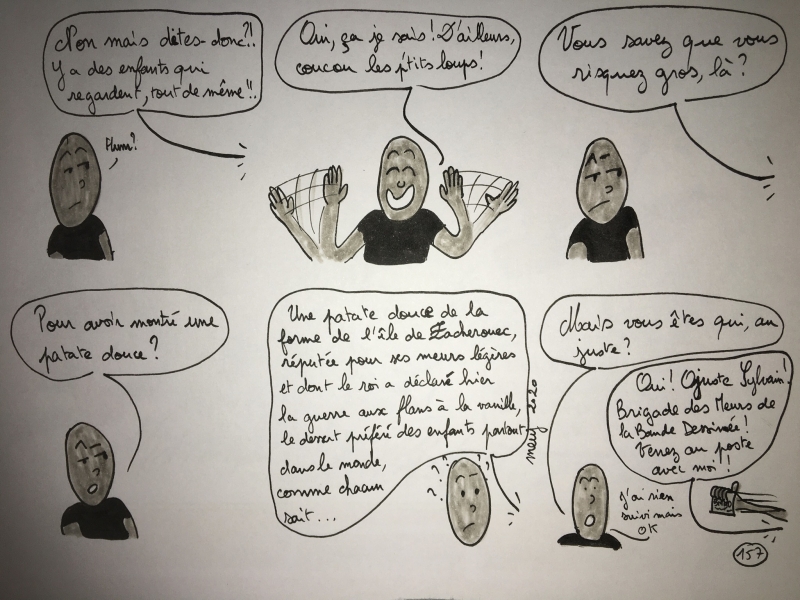 Non mais dites-donc?!!
Y a des enfants qui
regardent, tout de même!!
Hum?
Oui, ça je sais! D'ailleurs,
coucou les p'tits loups!
Vous savez que vous
risquez gros, là?
Pour avoir montré une
patate douce?
Une patate douce de la
forme de l'île de Zacherouec,
réputée pour ses meurs légères
et dont le roi a déclaré hier
la guerre aux flans à la vanille,
le dessert préféré des enfants partout
dans le monde,
comme chacun
sait...
???
meuy 2020
Mais vous êtes qui, au
juste?
Oui! Ojuste Sylvain!
Brigade des Meurs de
la Bande Dessinée!
Venez au poste
avec moi!!
J'ai rien
suivi mais
OK
157